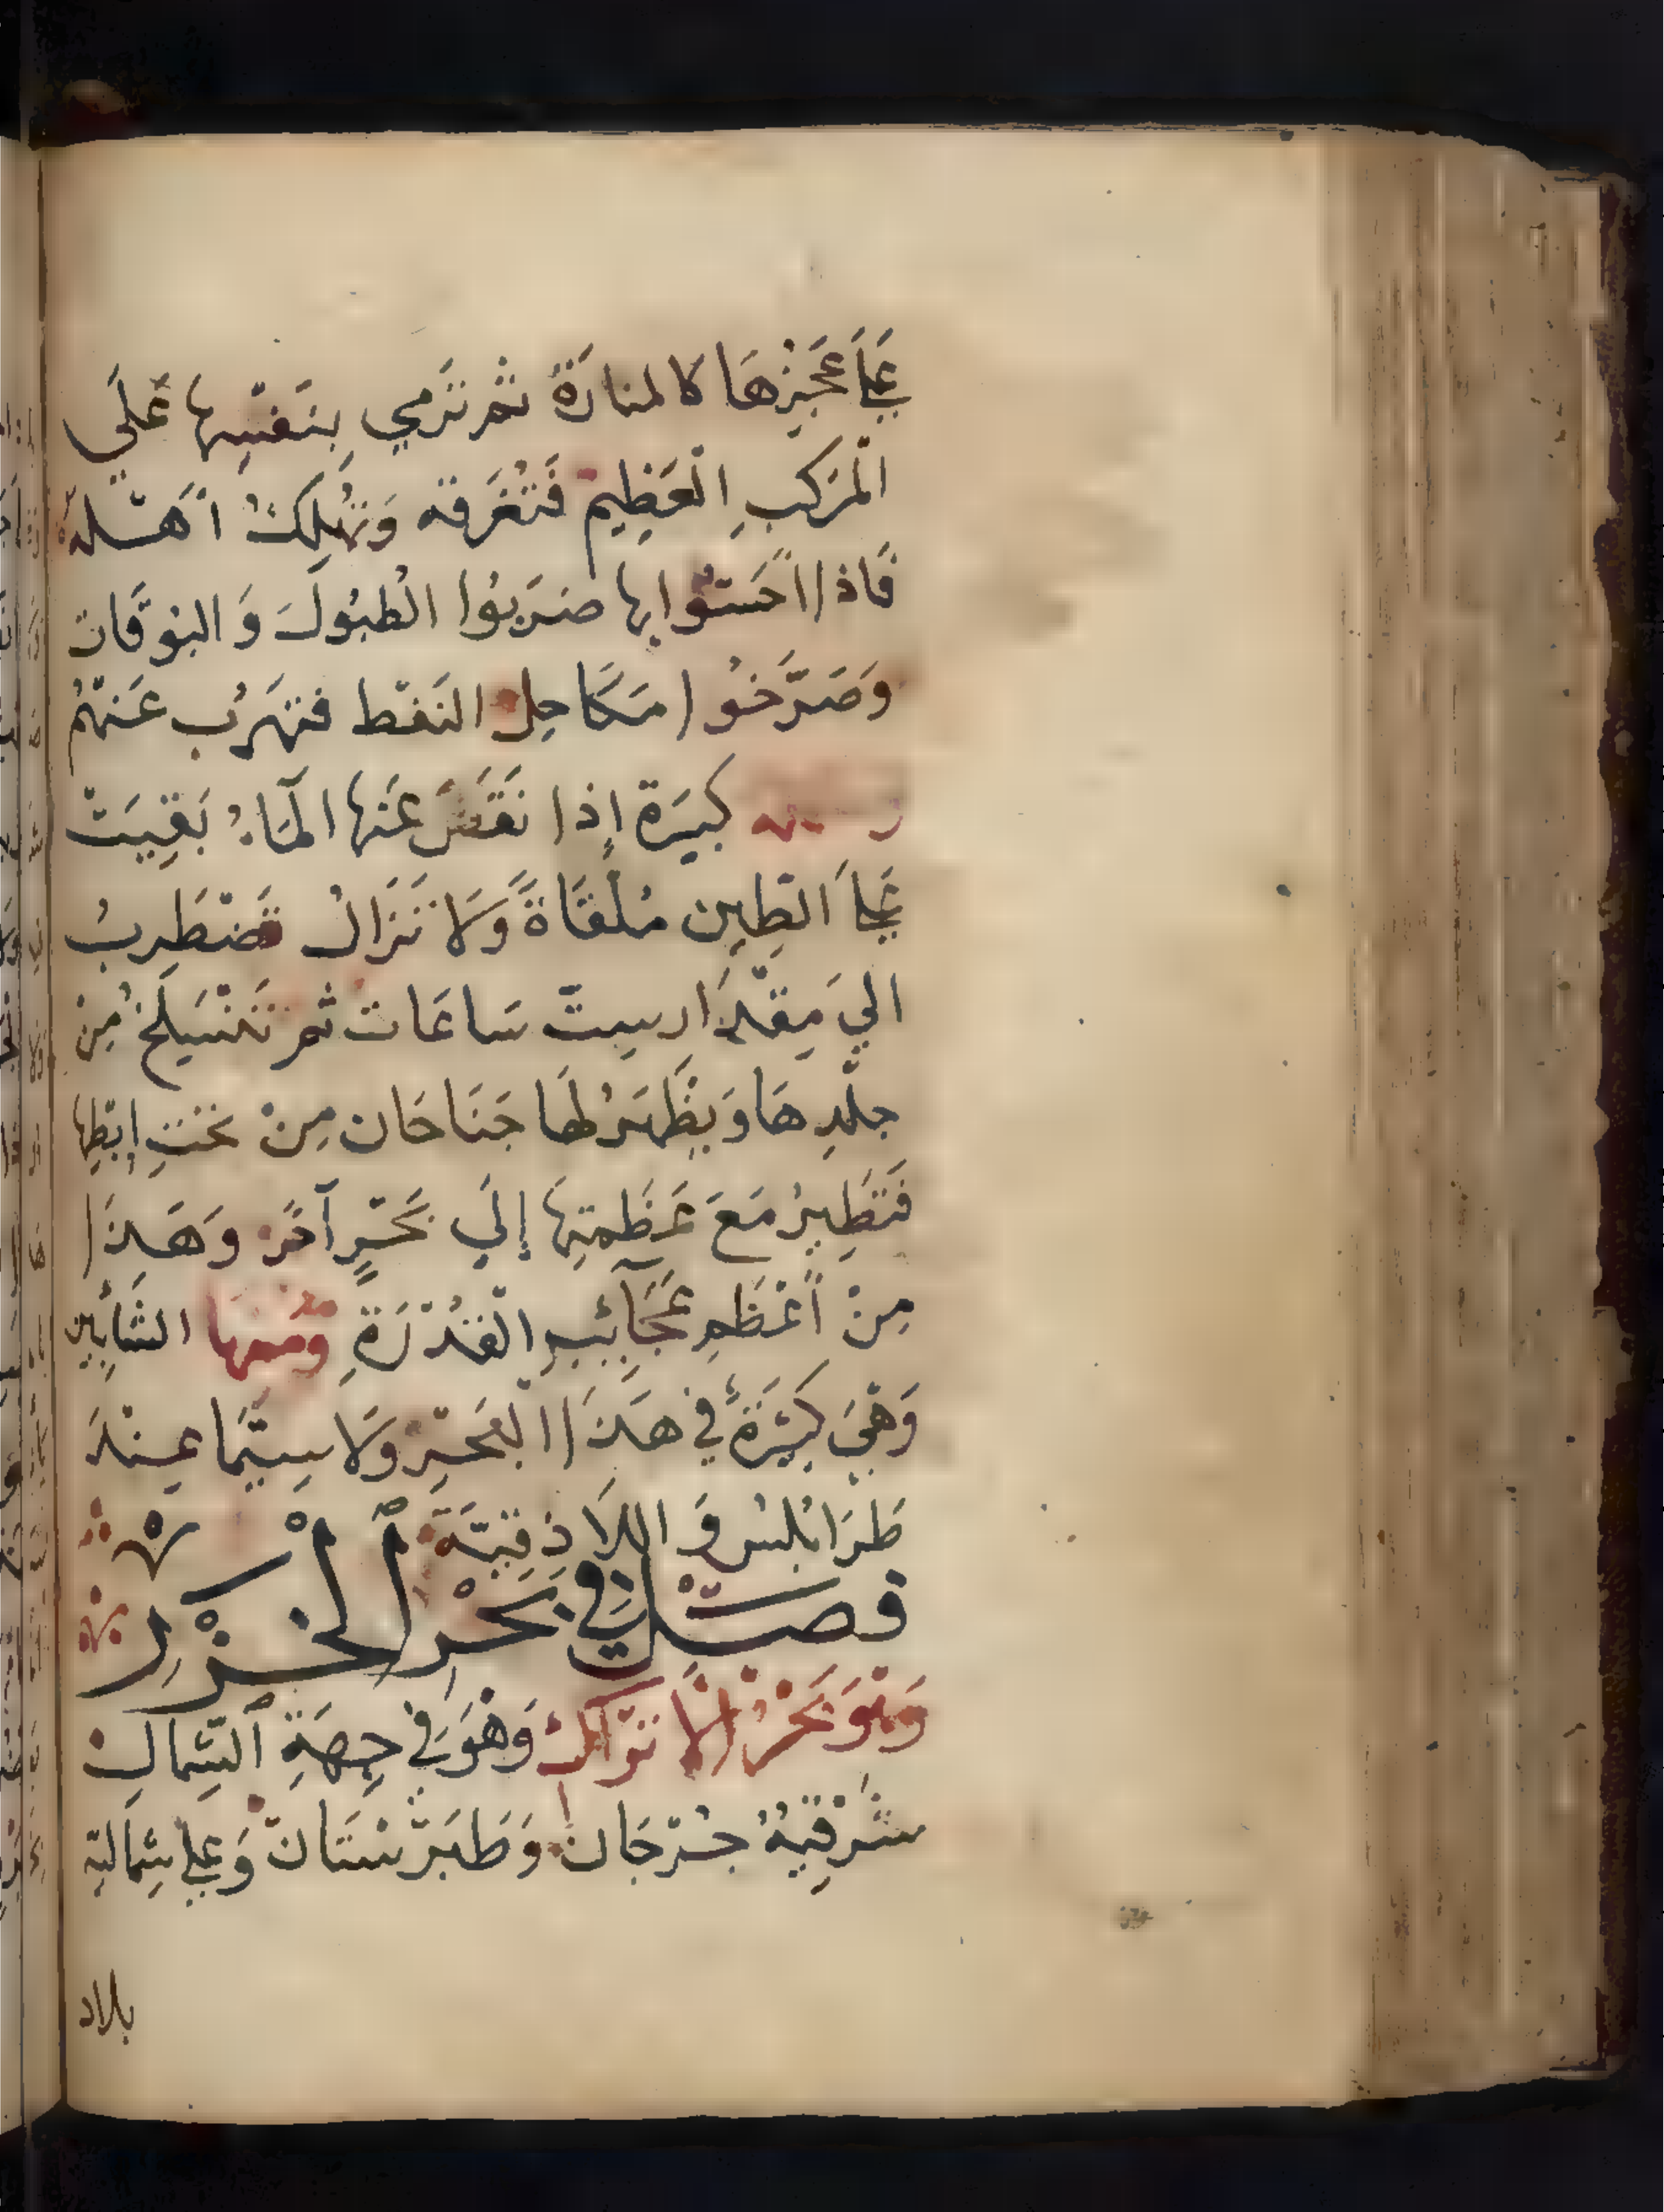 عَلَى عَجُزِهَا كالمنارَةِ ثم تَرمي بِنَفْسِهَا عَلَي
الْمَركبِ الْعَظِيم فَتُغرَقه وَتُهْلِكُ أَهْلَهُ
فَاذا أَحَسّوا بها ضَرَبُوا الْطبُولَ وَ البُوقَات
وَصَرَّخُوا مَكَاحِل النَفْط فتهَرُب عَنهُم
كبيَرَة إِذا نَقَصَ عَنها الْمَاءُ بَقِيَتْ
عَلَى الطِين مُلْقَاةً وَلَا تَزَالُ تَضْطَرِبُ
الي مِقْدَار سِتّ سَاعَات ثم تَنْسَلِخُ مِنْ
جلْدِهَا وَيَظْهَرُ لهَا جَنَاحَان مِنْ تَحْتِ إِبْطِها
فَتَطِيرُ مَعَ عَظَمتِهَا إِلَي بَحْرٍ آخَرَ وَهَذَا
مِنْ أَعْظَمِ عَجَآئِبِ الْقُدْرَةِ وَمِنهَا الثَّنَابِين
وَهْيَ كَثِيَرَةٌ في هَذَا الْبَحْرِ وَلَا سِيَّمَا عِنْدَ
طَرَابُلسُ وَ اللَاذِقيَّة
فصْل في بَحْرِ الْخَزَرِ
وَهْوَ بَحْرُ الأَتْرَاك وَهْوَ في جِهَةِ الشِّمالِ
شَرْقيهُ جُرْجَان وَطَبَرْسْتَانْ وَعلي شِمَالَيّهِ
بلاد